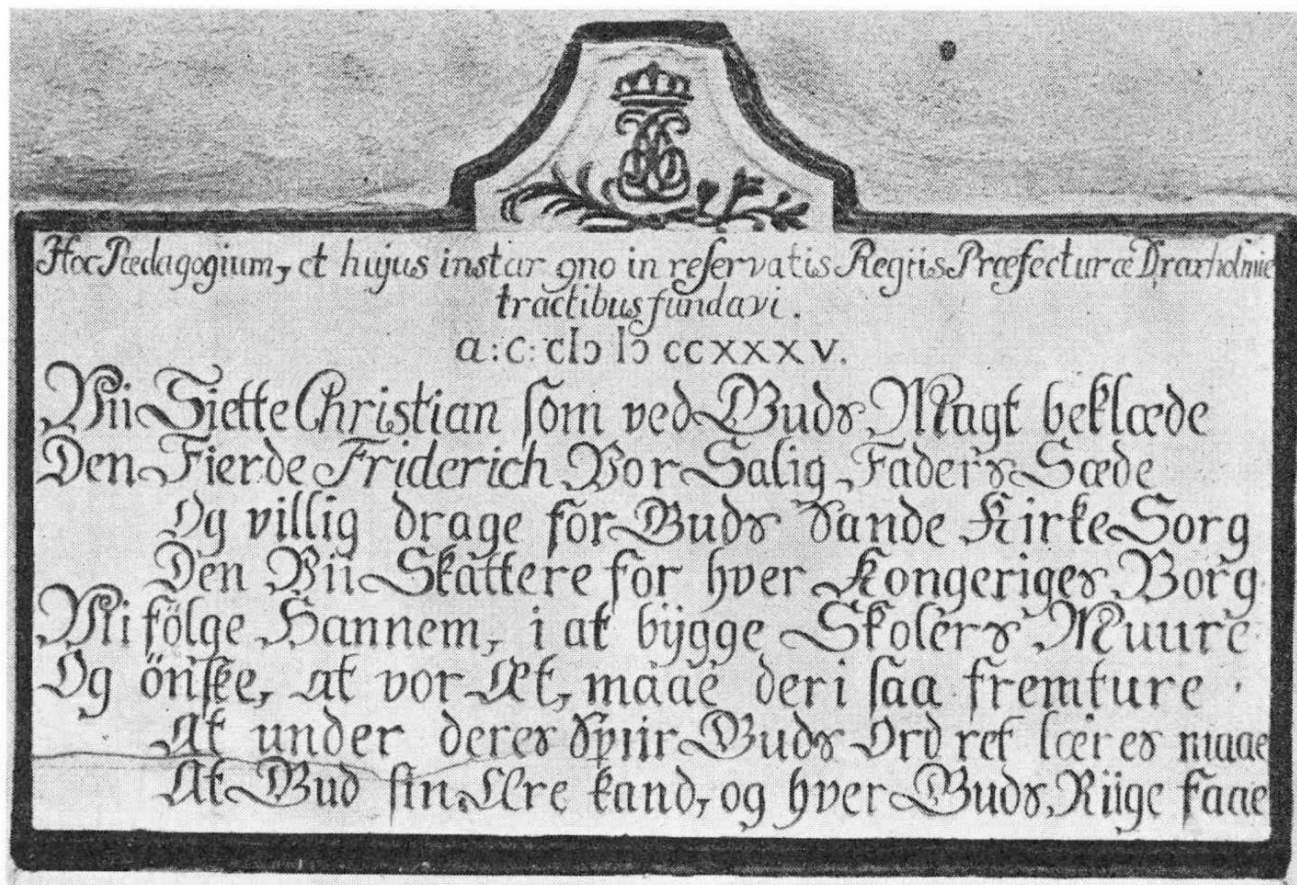 Hoc Pædagogium, et hujus instar qno in reservatis Regiis Præfecturæ Draxholmie
tractibus fundavi.
a:C: cIↄ Iↄ ccxxxv.
Vii Siette Christian som ved Guds Magt beklæde
Den Fierde Friderich Vor Salig Faders Sæde
Og villig drage for Guds sande Kirke Sorg
Den Vii Skattere for hver Kongeriges Borg
Vi fölge Hannem, i at bÿgge Skolers Muure
Og önske, at vor Æt, maae deri saa fremture
At under deres Spiir Guds Ord ret læres maae
At Gud sin Ære kand, og hver Guds Riige faae